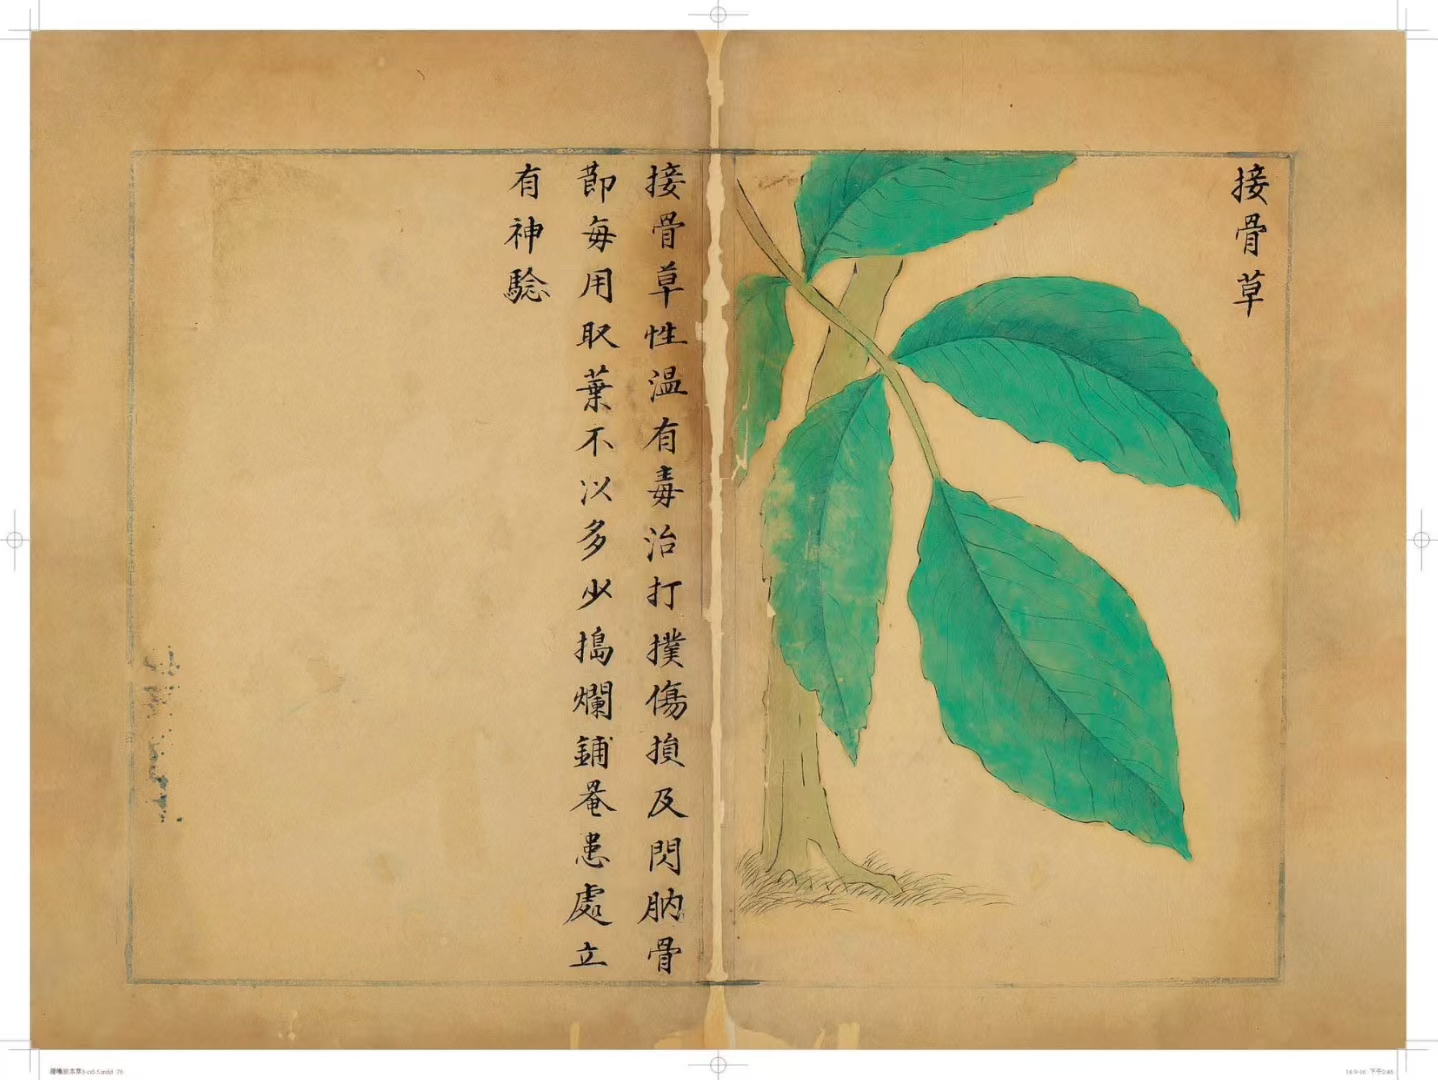 接骨草
接骨草性温有毒治打撲傷損及閃肭骨
節每用取葉不以多少搗爛鋪罨患處立
有神騐